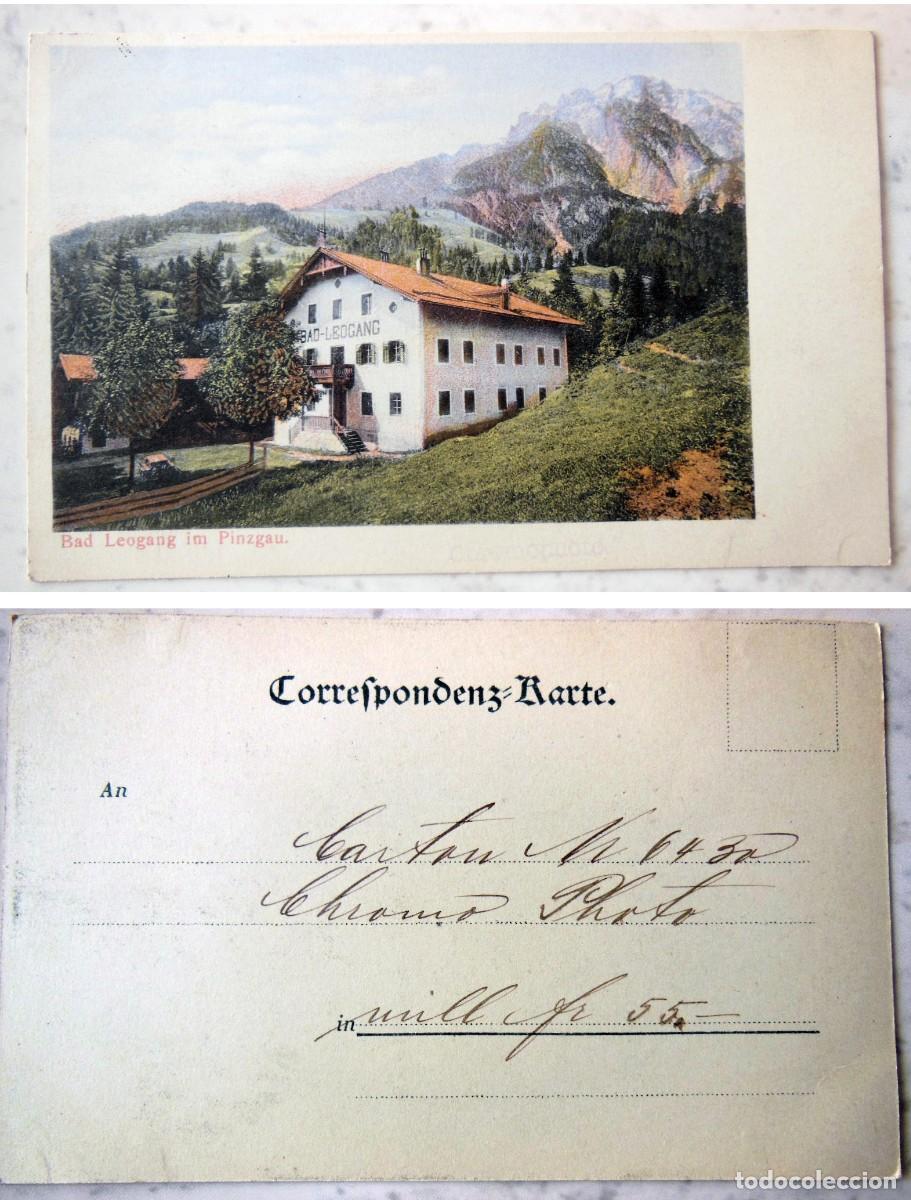 BAD-LEOGANG
Bad Leogang im Pinzgau.
Correſpondenz-Karte.
An
Carton No 6430
Chromo Photo
in mill fr 55.-
todocoleccion